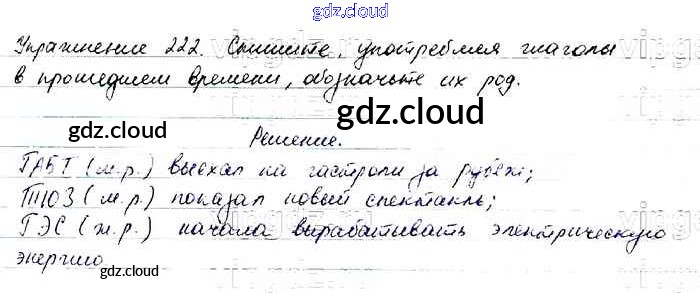 gdz.cloud
Упражнение 222. Спишите, употребляя глаголы
в прошедшем времени, обозначьте их род.
gdz.cloud
gdz.cloud
Решение.
ГАБТ (м.р.) выехал на гастроли за рубеж;
ТЮЗ (м.р.) показал новый спектакль;
gdz.cloud
ГЭС (ж.р.) начала вырабатывать электрическую
энергию
gdz.cloud